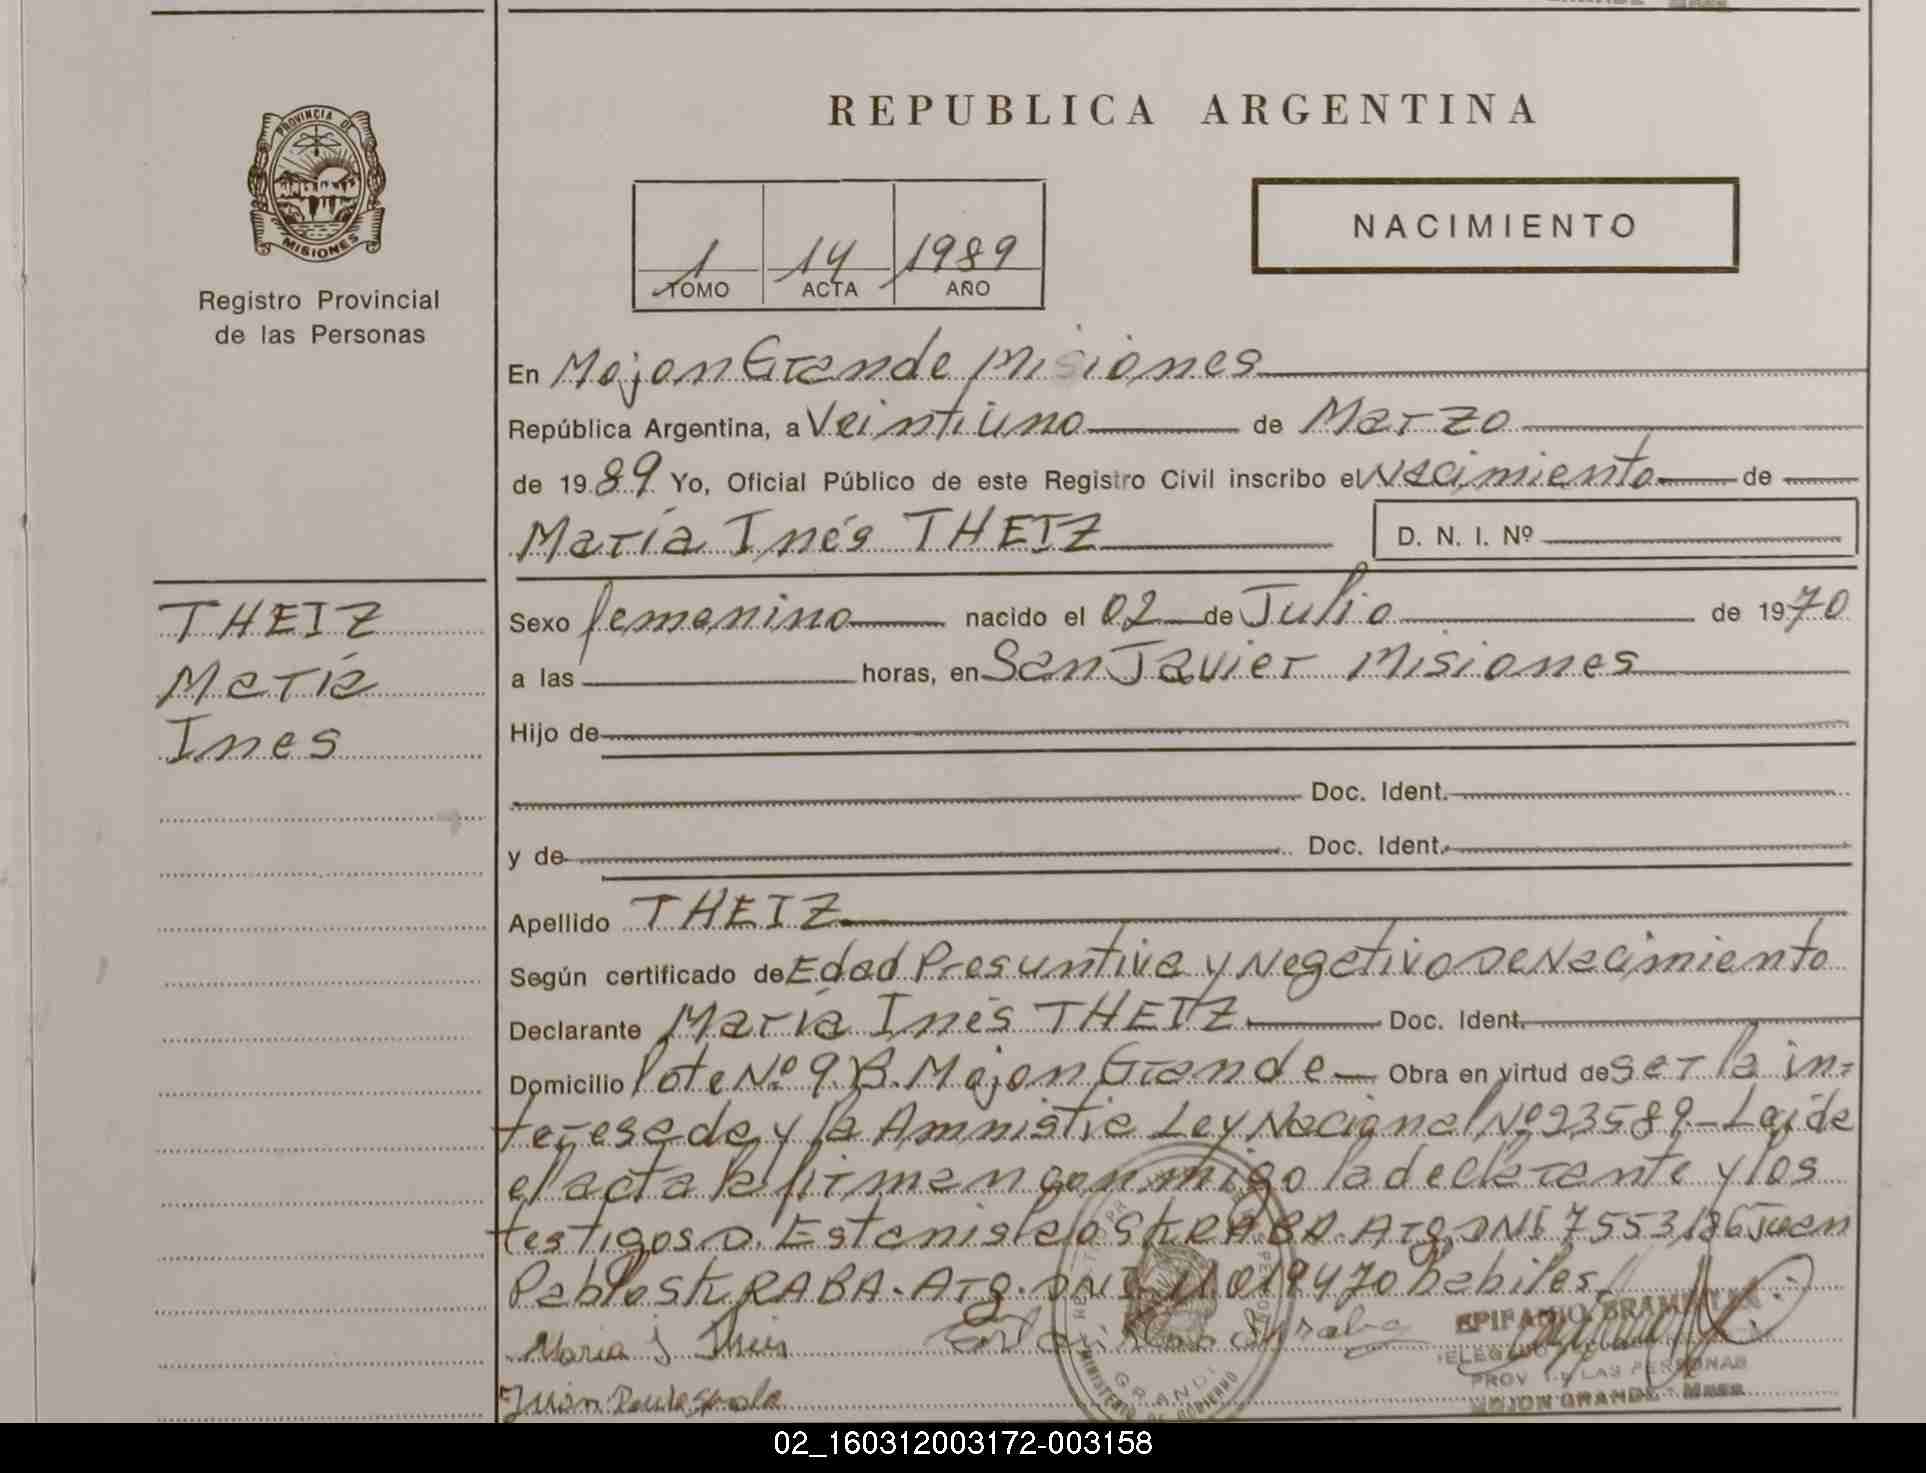 PROVINCIA DE
MISIONES
Registro Provincial
de las Personas
REPUBLICA ARGENTINA
1 14 1989
TOMO ACTA AÑO
NACIMIENTO
En Mojon Grande Misiones
República Argentina, a Veintiuno de Marzo
de 1989 Yo, Oficial Público de este Registro Civil inscribo el Nacimiento de
María Inés THEIZ D. N. I. Nº
THEIZ
María
Ines
Sexo femenino nacido el 02 de Julio de 1970
a las horas, en San Javier Misiones
Hijo de
Doc. Ident.
y de Doc. Ident.
Apellido THEIZ
Según certificado de Edad Presuntiva y Negativo De Nacimiento
Declarante María Inés THEIZ Doc. Ident.
Domicilio lote Nº 9.B. Mojon Grande Obra en virtud de ser la in=
teresada y la Amnistia Ley Nacional Nº 23589.- Leida
el acta la firman conmigo la declarante y los
testigos D. Estanislao SKRABA. Arg. DNI 7553186 Juan
Pablo SKRABA. Arg. DNI 11019470 habiles.
Maria
Juan
EPIFANIO
PROV. DE LAS PERSONAS
MOJON GRANDE - Mnes
MINISTERIO DE GOBIERNO
02_160312003172-003158